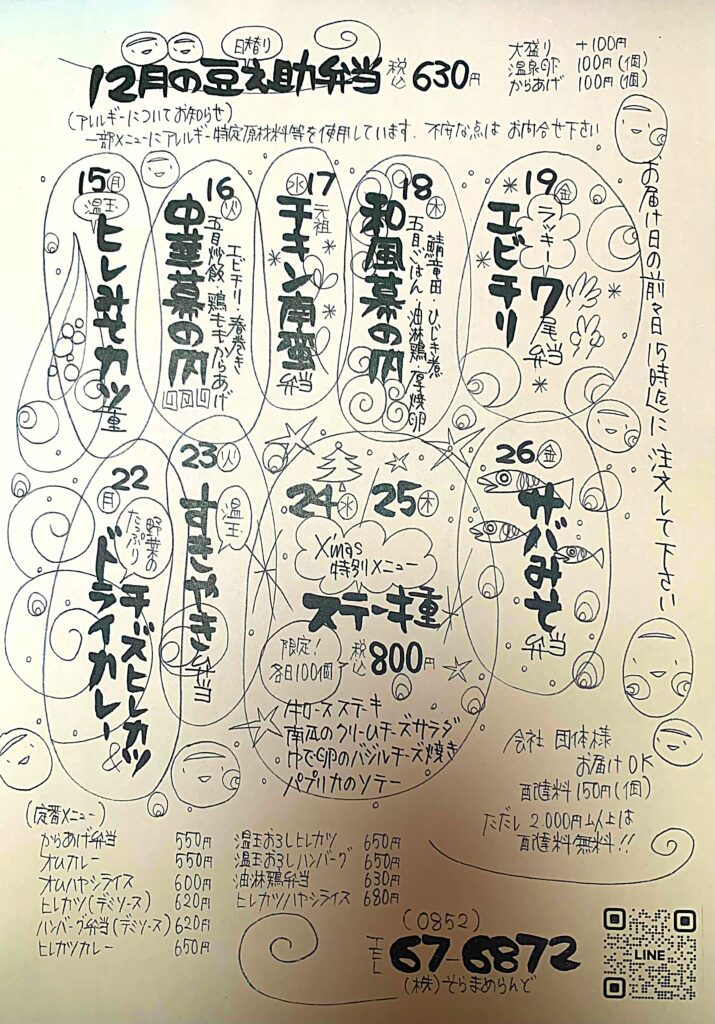 日替り
12月の豆え助弁当 税込 630円
大盛り +100円
温泉卵 100円(1個)
からあげ 100円(1個)
(アレルギーについてお知らせ)
一部メニューにアレルギー特定原材料等を使用しています。不安な点はお問合せ下さい
お届け日の前々日15時迄に注文して下さい
15(月)
温玉
ヒレみそカツ重
16(火)
中華幕の内
エビチリ・春巻き
五目炒飯・鶏モモからあげ
17(水)
元祖
チキン南蛮弁当
18(木)
和風幕の内
鯖竜田・ひじき煮
五目ごはん・油淋鶏・厚焼卵
19(金)
ラッキー7尾弁当
エビチリ
22(月)
野菜のたっぷり
チーズヒレカツ&
ドライカレー
23(火)
温玉
すきやき弁当
24(水) 25(木)
X'mas
特別メニュー
ステーキ重
限定!
各日100個
税込800円
牛ロースステーキ
南瓜のクリームチーズサラダ
ゆで卵のバジルチーズ焼き
パプリカのソテー
26(金)
サバみそ弁当
会社 団体様
お届けOK
配達料150円(1個)
ただし 2,000円以上は
配達料無料!!
(定番メニュー)
からあげ弁当 550円
オムカレー 550円
オムハヤシライス 600円
ヒレカツ(デミソース) 620円
ハンバーグ弁当(デミソース) 620円
ヒレカツカレー 650円
温玉おろしヒレカツ 650円
温玉おろしハンバーグ 650円
油淋鶏弁当 630円
ヒレカツハヤシライス 680円
(0852)
TEL 67-6872
(株)そらまめらんど
LINE